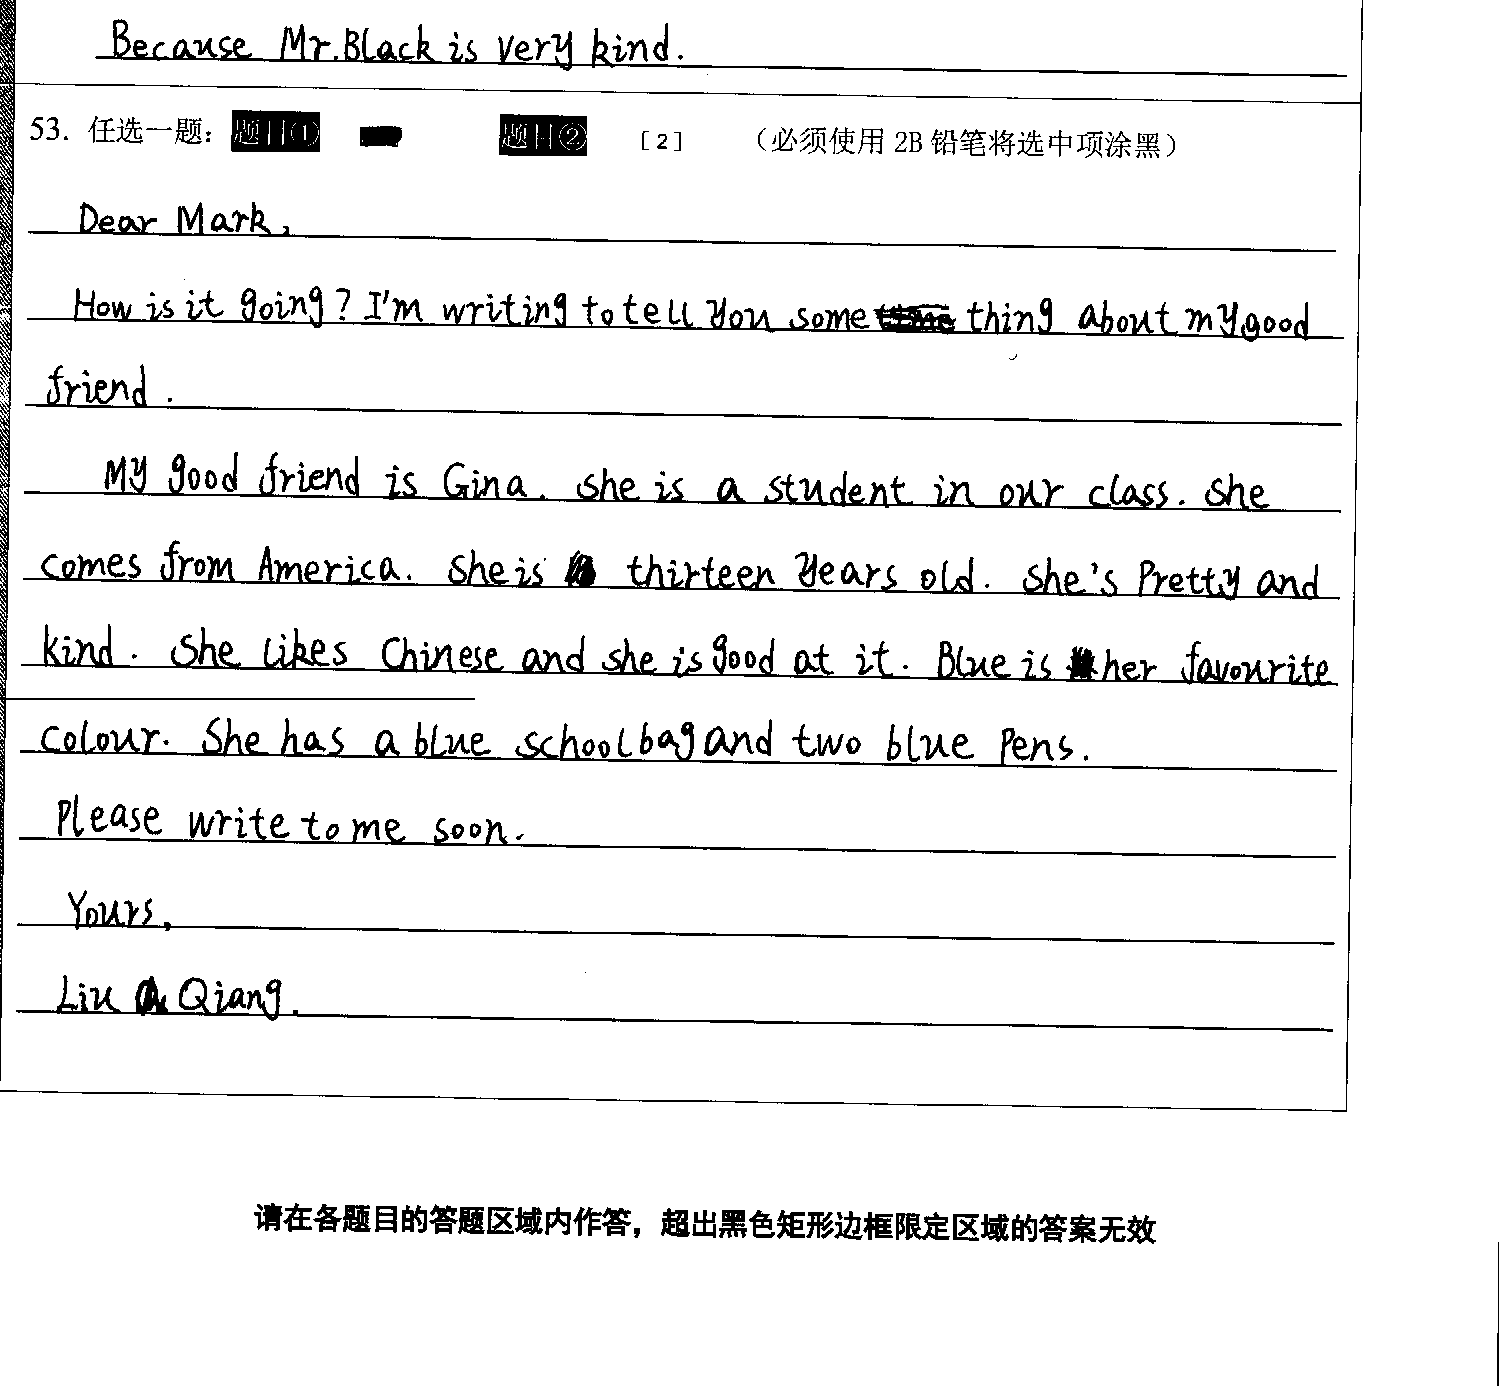 Because Mr.Black is very kind.
53. 任选一题： 题目① 题目② [2] （必须使用 2B 铅笔将选中项涂黑）
Dear Mark,
How is it going? I'm writing to tell you some thing about my good
friend.
My good friend is Gina. She is a student in our class. She
comes from America. She is thirteen years old. She's Pretty and
kind. She likes Chinese and she is good at it. Blue is her favourite
colour. She has a blue schoolbag and two blue Pens.
Please write to me soon.
Yours,
Liu Qiang.
请在各题目的答题区域内作答，超出黑色矩形边框限定区域的答案无效